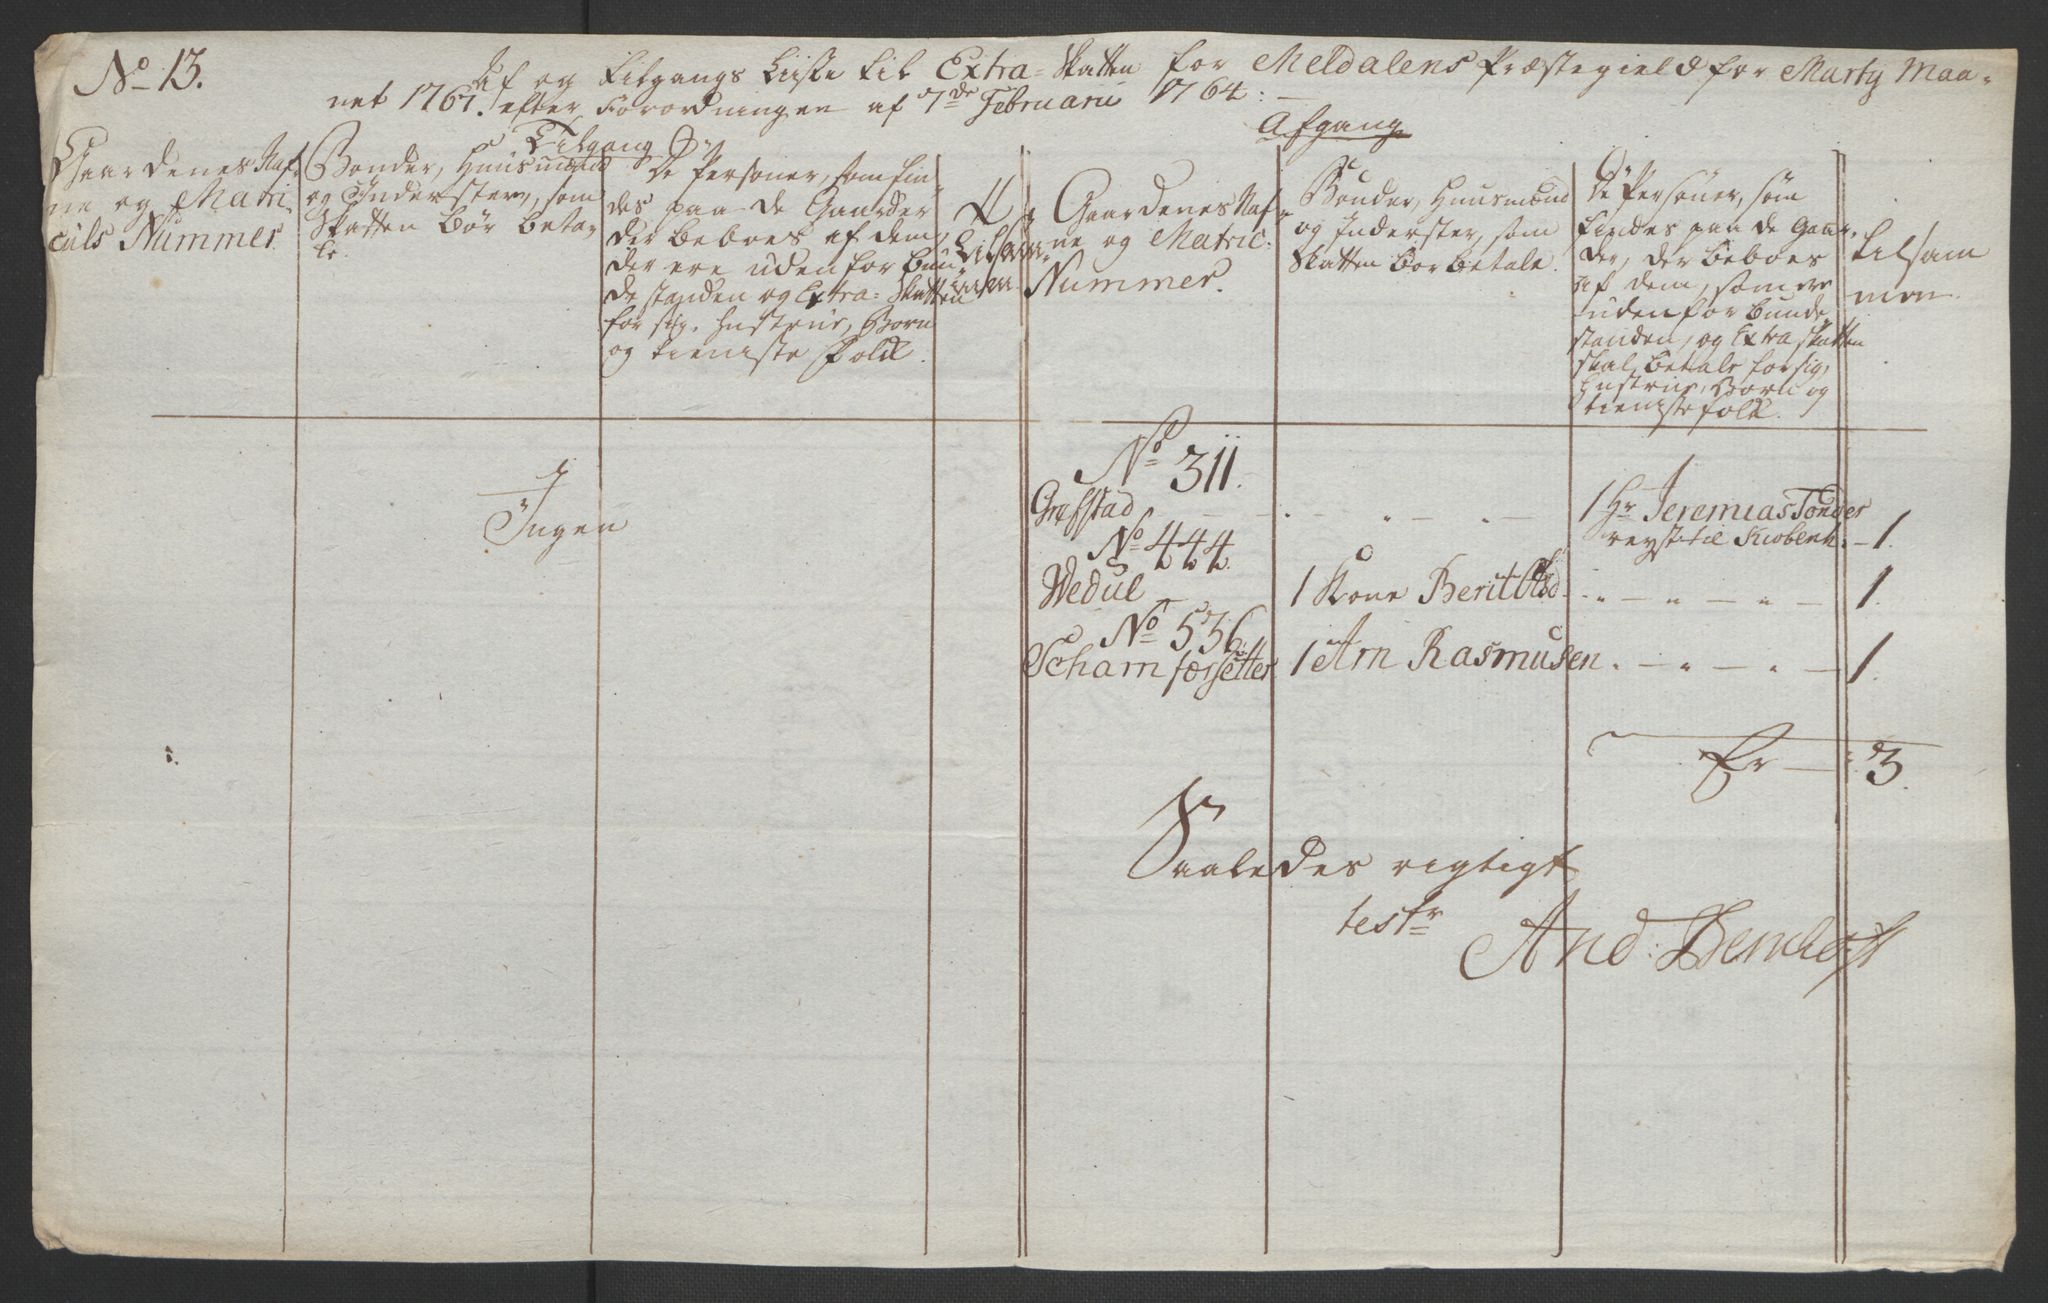 No 13.
Af og Tilgangs Liste til Extra-Skatten for Meldalens Præstegield for Marty Maa-
net 1767. efter Forordningen af 7de Februarii 1764:
Tilgang
Gaardenes Naf-
ne og Matri-
culs Nummer.
Bønder, Huusmænd
og Inderster, som
Skatten bør beta-
le.
De Personer, som fin-
des paa de Gaarder
der beboes af dem,
der ere uden for Bun-
destanden og Extra-Skatten
for sig, Hustrue, Børn
og tieniste Folk.
Tilsam-
men.
Ingen
Afgang
Gaardenes Naf-
ne og Matric:
Nummer.
Bønder, Huusmænd
og Inderster, som
Skatten bør betale.
De Personer, som
findes paa de Gaar-
der, der beboes
af dem, som ere
uden for Bunde-
standen, og Extra skatten
skal betale for sig,
Hustrue, Børn og
tieniste folk.
tilsam
men.
No 311.
Grefstad 1 Hr Jeremias Tonder
reyst til Kiobenh. - 1.
No 444.
Wedul 1 Kone Berit 1.
No 536.
Scham færsetter 1 Arn Rasmusen 1.
Er 3.
Saaledes rigtigt
testr
And: